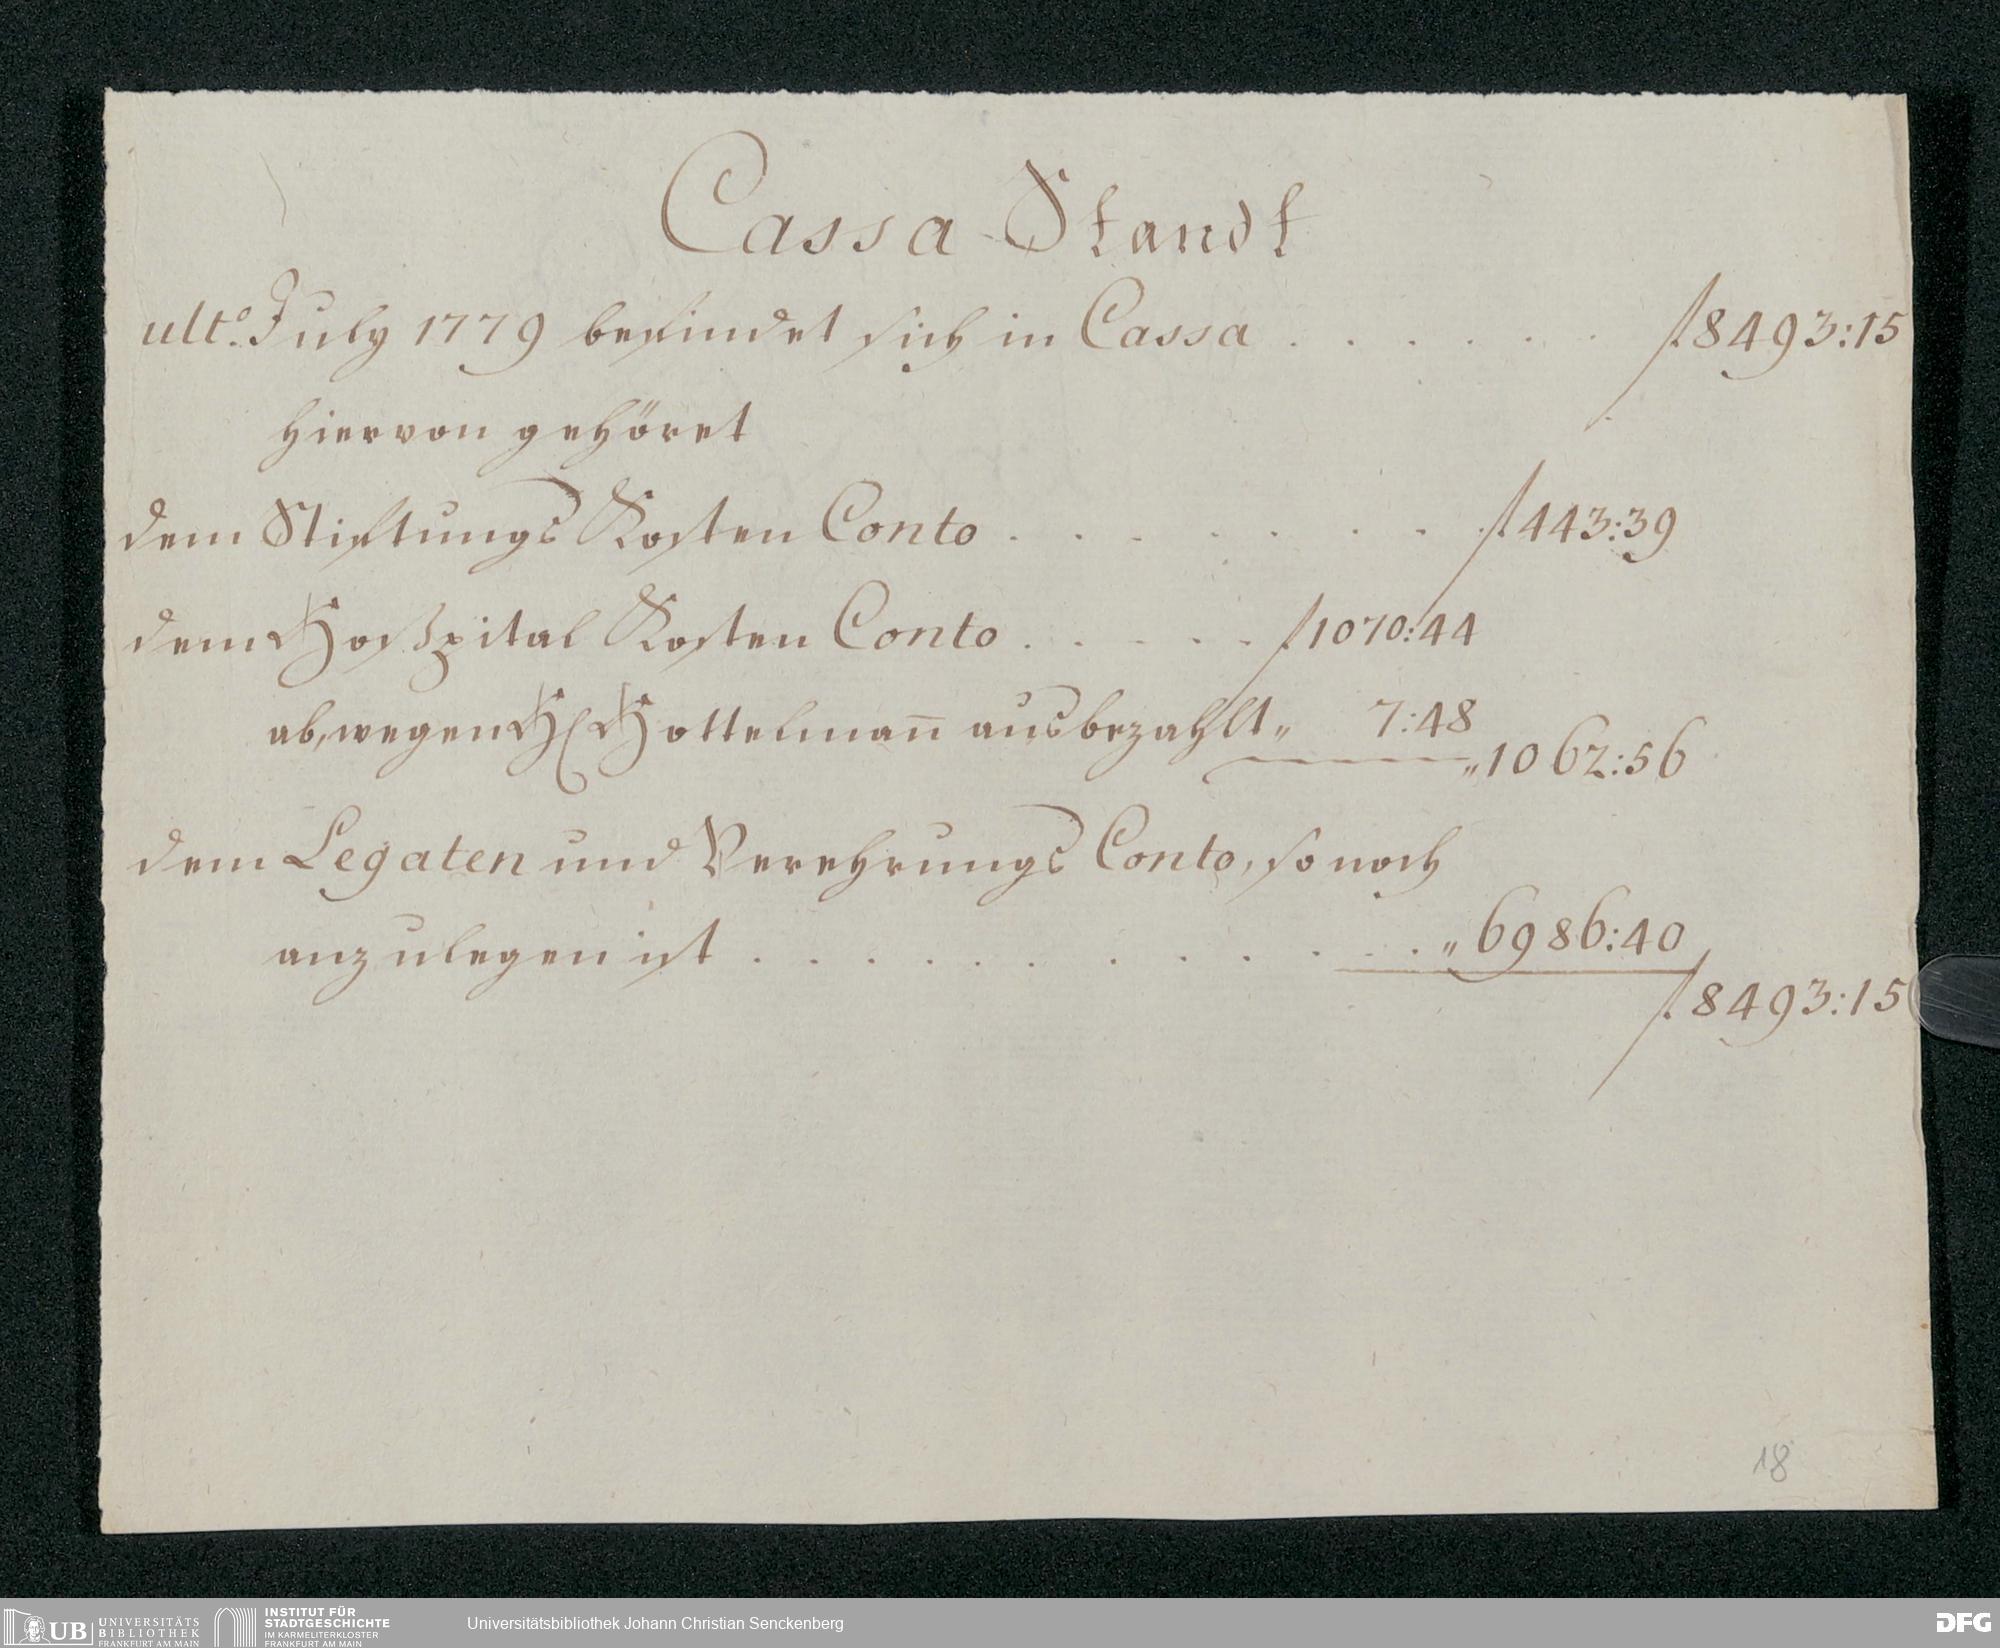 Cassa Standt
ulto. July 1779 befindet sich in Cassa . . . . . . f. 8493:15
hiervon gehöret
dem Stiftungs Kosten Conto . . . . . . . . f. 443:39
dem Hoszpital Kosten Conto . . . . . f. 1070:44
ab, wegen H. Hottelman̄ ausbezahlt „ 7:48
„ 1062:56
dem Legaten und Verehrungs Conto, so noch
anzulegen ist . . . . . . . . . . . . „ 6986:40
f. 8493:15
18
UB UNIVERSITÄTS BIBLIOTHEK FRANKFURT AM MAIN
INSTITUT FÜR STADTGESCHICHTE IM KARMELITERKLOSTER FRANKFURT AM MAIN
Universitätsbibliothek Johann Christian Senckenberg
DFG